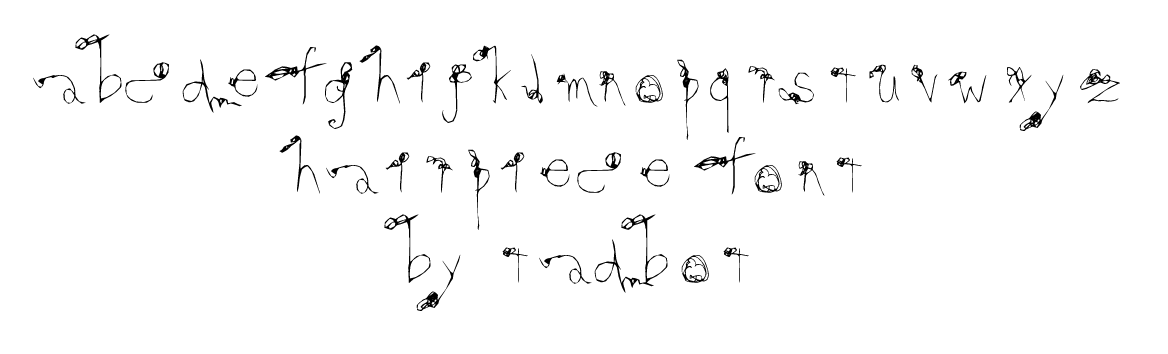 abcdefghijklmnopqrstuvwxyz
hairpiece font
by tadbot